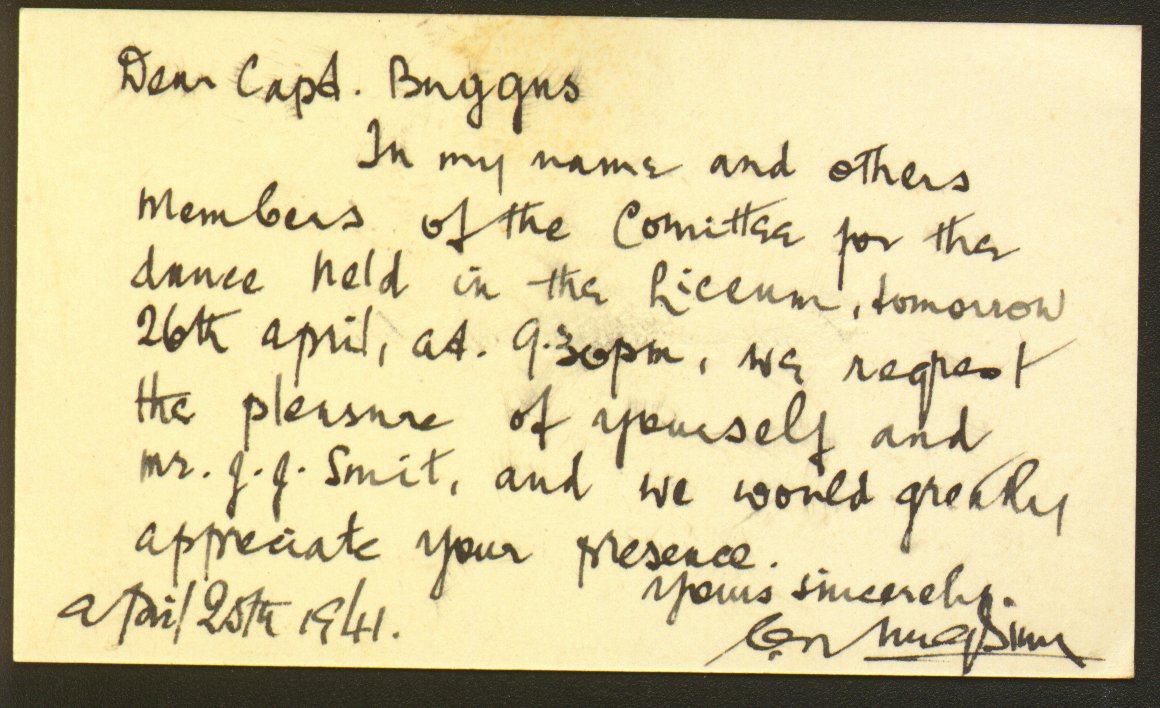 Dear Capt. Buggus
In my name and others
Members of the Comittee for the
dance held in the Liceum, tomorrow
26th april, at. 9.30pm, we reqest
the pleasure of yourself and
mr. J.J. Smit, and we would greatly
appreciate your presence.
yours sincerely.
April 25th 1941.